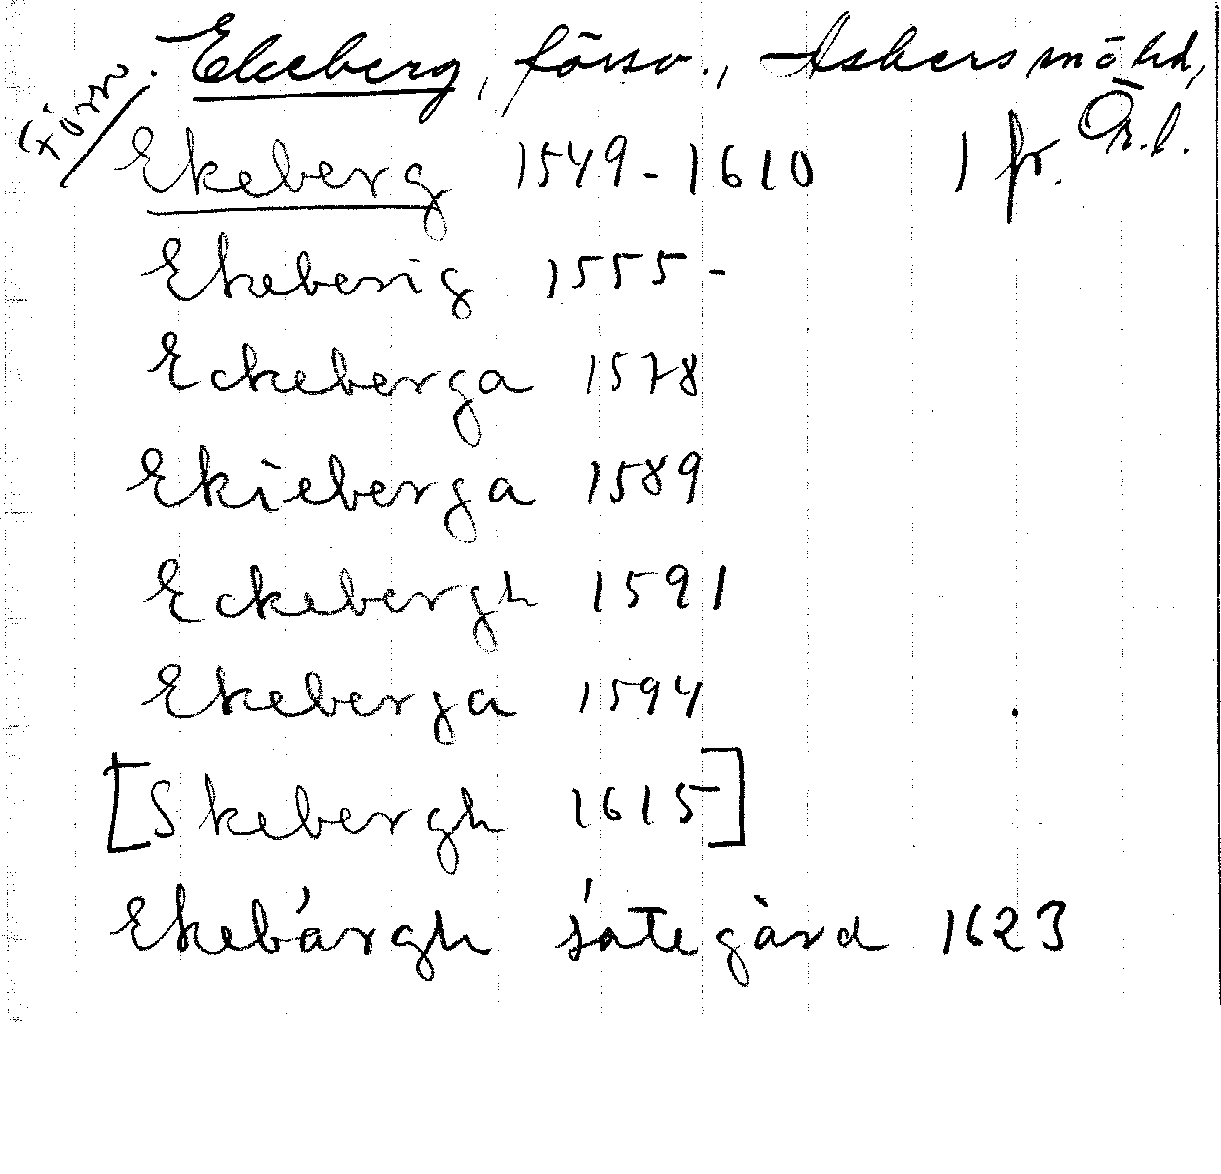 Förr. Ekeberg, försv., Askers sn o hd,
Ör.l.
Ekeberg 1549-1610 1 fr.
Ekeberig 1555-
Eckeberga 1578
Ekieberga 1589
Eckebergh 1591
Ekeberga 1594
[Skebergh 1615]
Ekebärgh sätegård 1623